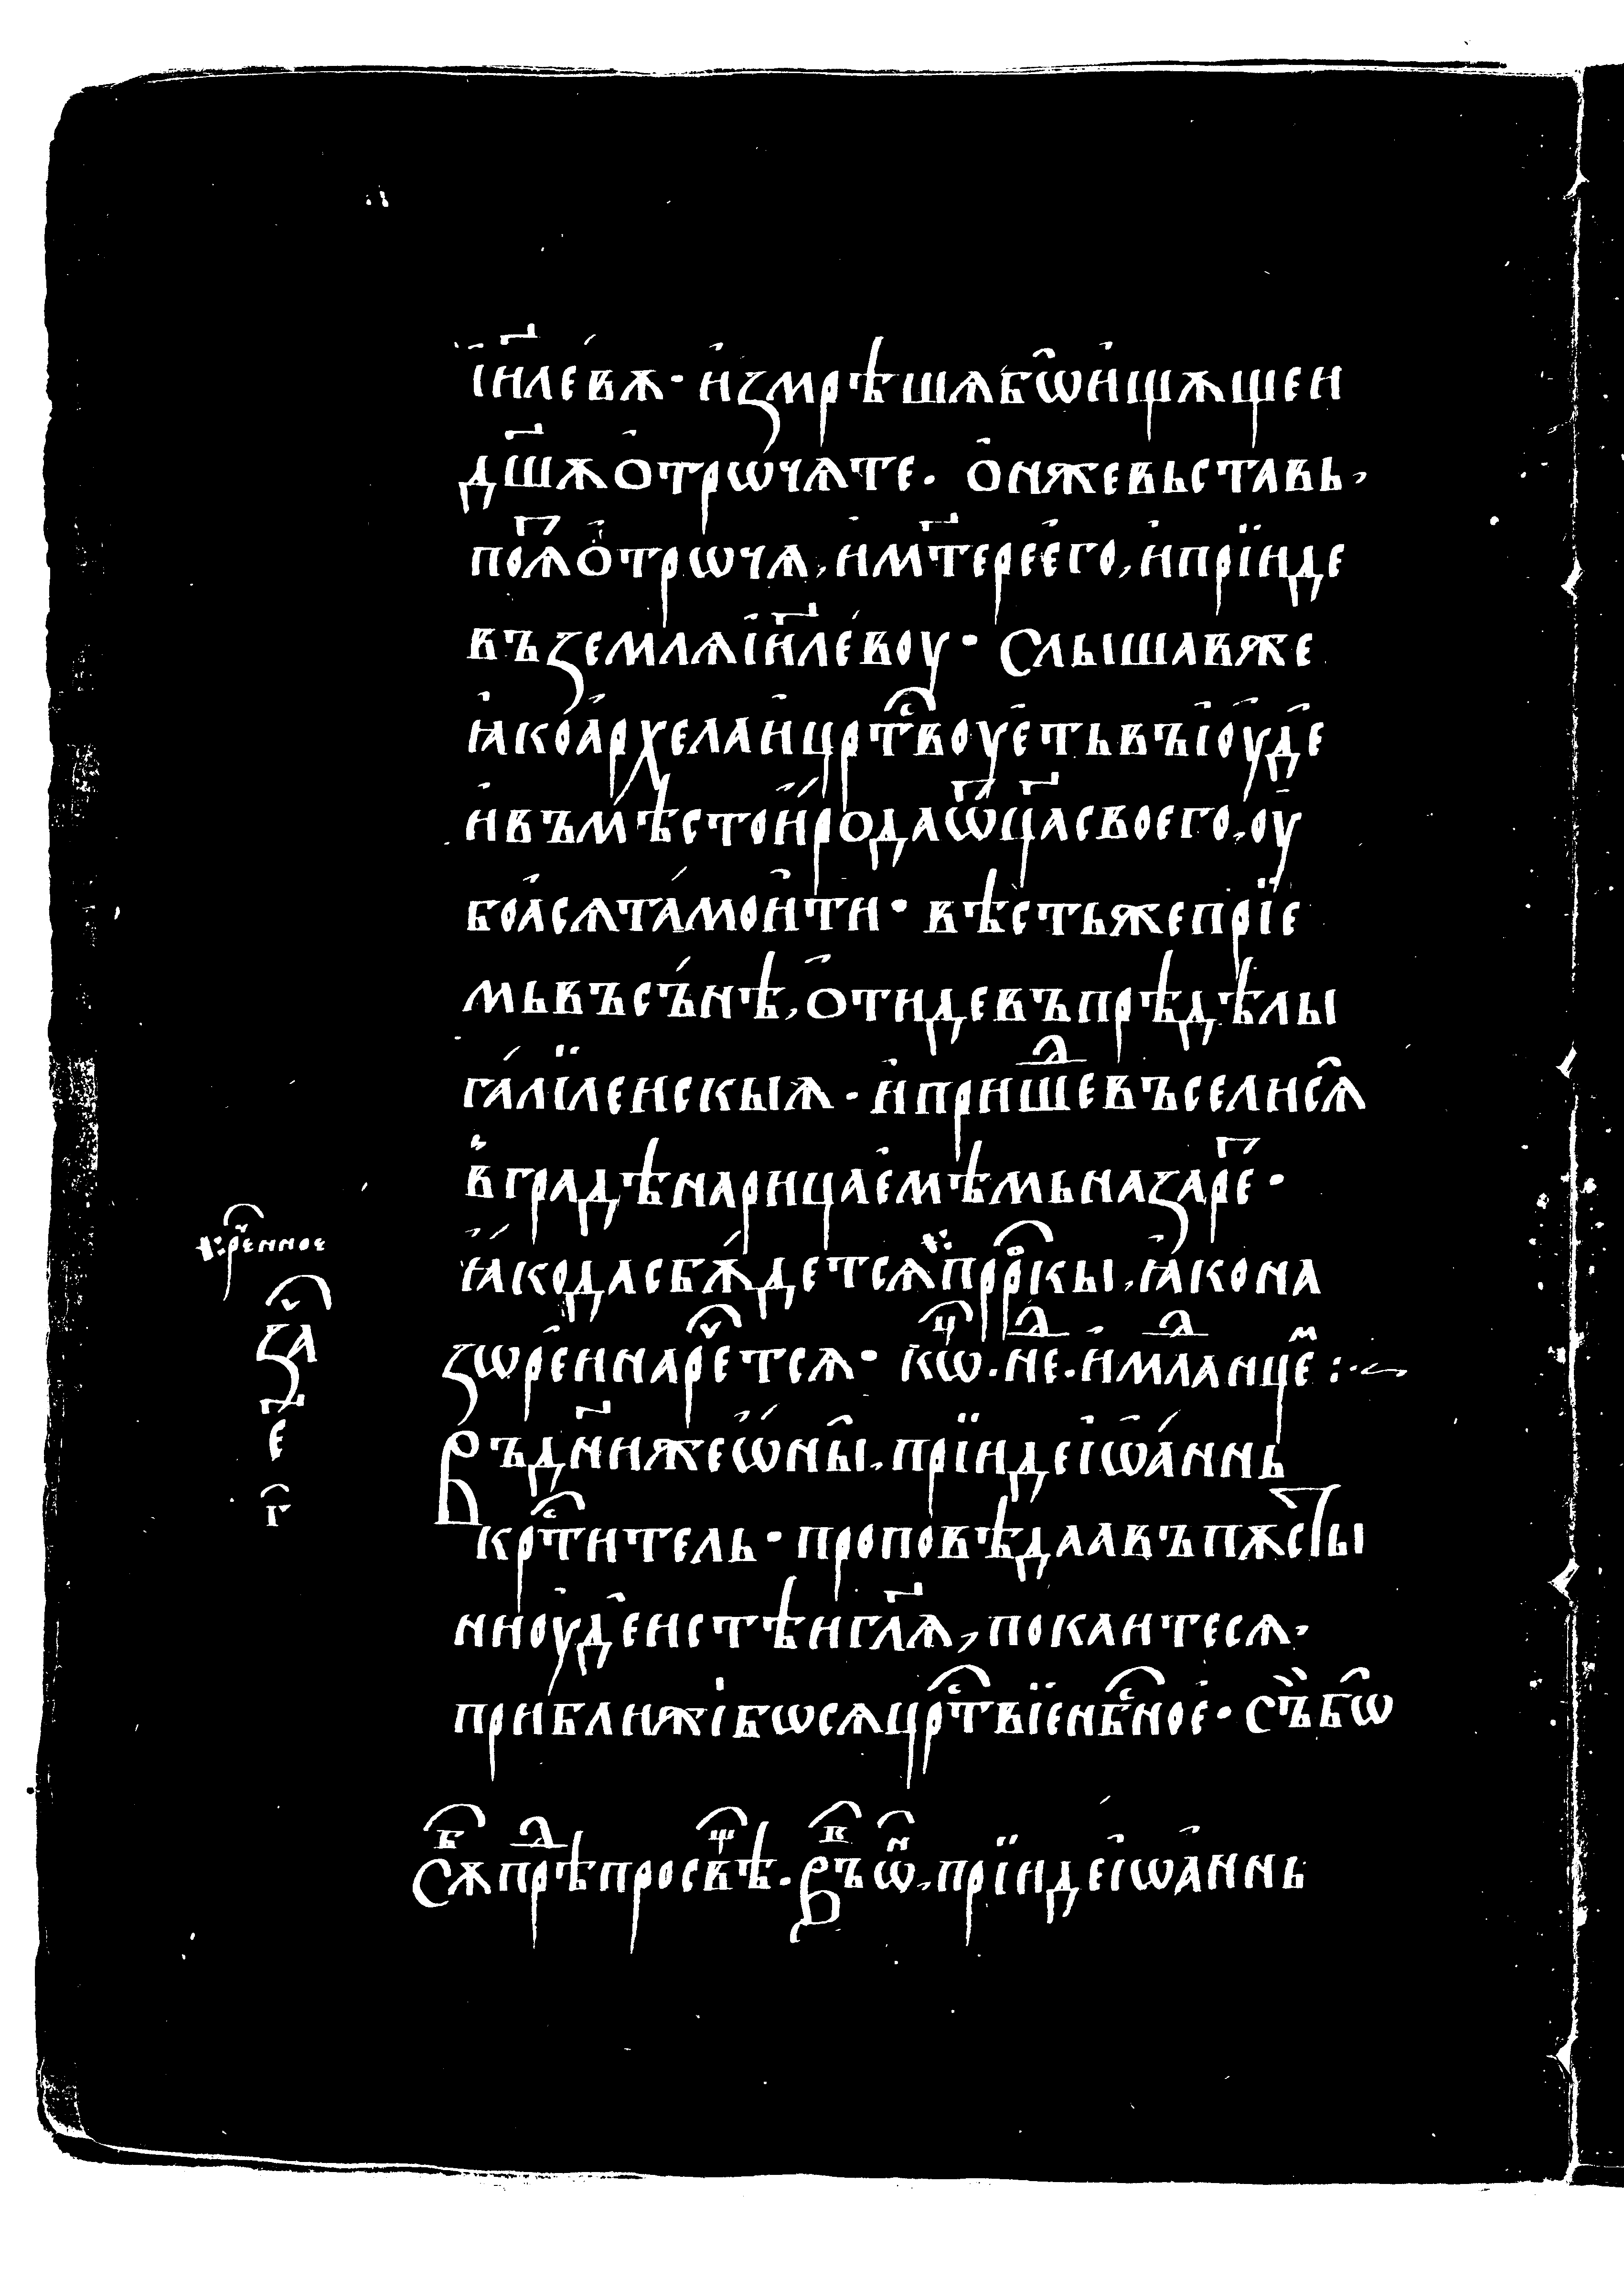 і҆и҃ле́вѫ · и҆ꙁмрѣшѧбѡи҆щѫщеи
дш҃ѫо҆трѡчѧте . о҆нжевьставь ,
поѧ҃о҆трѡчѧ , и҆мт҃ерее҆го , и҆прїиде
въꙁемлѧі҆и҃ле́воу · Слышавже
ꙗ҆коа҆рхелаи҆црⷭ҇твоуе҆тьвъі҆оу҆де҆
и҆въмѣстои҆родаѿц҃асвоего , оу
боа҆сѧта́мои҆ти · вѣстьжепрїе
мьвъсъ́нѣ , о҆тидевъпрѣдѣлы
га́лїлеискыѧ · и҆пришеⷣвъселисѧ҆
в҆градѣнарицае҆мѣмьнаꙁаре҃ ·
ꙗ҆кодасбѫ́детсѧ꙯прⷪ҇ркы , ꙗ҆кона
ꙁѡре҆инареⷱ҇тсѧ · к҃ѡⷰ҇ . неⷣ . и҆млаⷣнцеⷨ :·~
Въдн҃ижеѡ҆ны҆ , прїидеі҆ѡ҆а́ннь
крⷭ҇титель · проповѣдаавъпѫсты
ниоу҆де҆истѣигл҃ѧ , покаитесѧ ·
приближі҆бѡсѧцрⷭ҇твїенбⷭ҇ное҆ · Съ҆бѡ
꙯реⷱ҇нное
ꙁаⷱ҇
е
г҃
Сѫⷠ҇прⷣѣпросвⷳ҇ѣ . Въⷡ҇ѡ҆ⷩ҇ , прїидеі҆ѡа҆ннь